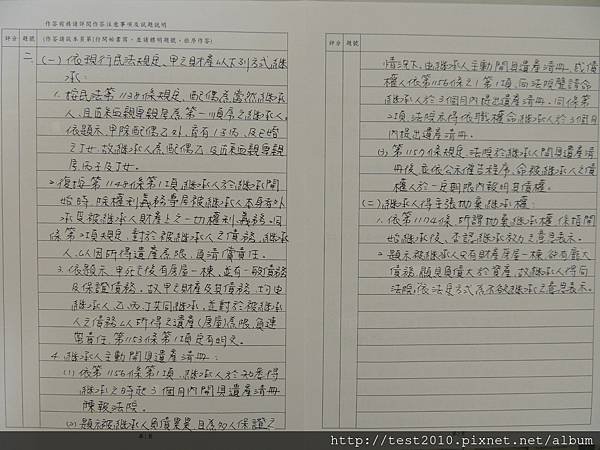 作答前務請詳閱作答注意事項及試題說明
評分 題號 (作答請從本頁第1行開始書寫,並請標明題號,依序作答)
二 (一)依現行民法規定,甲之財產以下列方式繼
承:
1. 按民法第1138條規定,配偶為當然繼承
人,且直系血親卑親屬為第一順序之繼承人。
依題示,甲除配偶乙外,育有1子丙,及已婚
之丁女,故繼承人為配偶乙及直系血親卑親
屬丙子及丁女。
2. 復按第1148條第1項,繼承人於繼承開
始時,除權利義務專屬被繼承人本身者外
承受被繼承人財產上之一切權利、義務。同
條第2項規定,對於被繼承人之債務,繼承
人以因所得遺產為限,負清償責任。
3. 依題示,甲死亡後有房屋一棟,並有一般債務
及保證債務,故甲之財產及其債務,均由
繼承人乙、丙、丁共同繼承,並對於被繼承
人之債務以所得之遺產(房屋)為限,負連
帶責任,第1153條第1項定有明文。
4. 繼承人主動開具遺產清冊:
(1)依第1156條第1項,繼承人於知悉得
繼承之時起3個月內開具遺產清冊
陳報法院。
(2)題示被繼承人負債累累,且為多人保證之
第1頁
評分 題號
情況下,由繼承人主動開具遺產清冊,或債
權人依第1156條之1第1項,向法院聲請命
繼承人於3個月內提出遺產清冊。同條第
2項,法院亦得依職權命繼承人於3個月
內提出遺產清冊。
(3)第1157條規定,法院於繼承人開具遺產清
冊後,應依公示催告程序,命被繼承人之債
權人於一定期限內報明其債權。
(二)繼承人得主張拋棄繼承權:
1. 依第1174條,所謂拋棄繼承權係指開
始繼承後,否認繼承效力之意思表示。
2. 題示被繼承人只有財產房屋一棟,卻有龐大
債務,顯見負債大於資產,故繼承人得向
法院,依法定方式為不欲繼承之意思表示。
http://test2010.pixnet.net/album